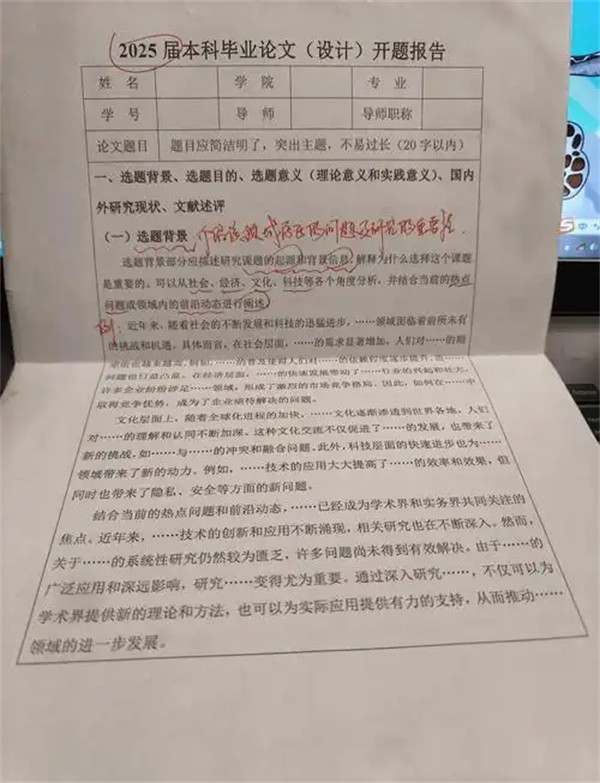 2025 届本科毕业论文（设计）开题报告
姓 名 学 院 专 业
学 号 导 师 导师职称
论文题目 题目应简洁明了，突出主题，不易过长（20 字以内）
一、选题背景、选题目的、选题意义（理论意义和实践意义）、国内
外研究现状、文献述评
（一）选题背景
选题背景部分应描述研究课题的起源和背景信息，解释为什么选择这个课题
是重要的。可以从社会、经济、文化、科技等各个角度分析，并结合当前的热点
问题或领域内的前沿动态进行阐述。
例：近年来，随着社会的不断发展和科技的迅猛进步，……领域面临着前所未有
的挑战和机遇。具体而言，在社会层面，……的需求日益增加，人们对……的期
许多企业纷纷涉足……领域，形成了激烈的市场竞争格局。因此，如何在……中
取得竞争优势，成为了企业亟待解决的问题。
文化层面上，随着全球化进程的加快，……文化逐渐渗透到世界各地，人们
对……的理解和认同不断加深。这种文化交流不仅促进了……的发展，也带来了
新的挑战，如……与……的冲突和融合问题。此外，科技层面的快速进步也为……
领域带来了新的动力。例如，……技术的应用大大提高了……的效率和效果，但
同时也带来了隐私、安全等方面的新问题。
结合当前的热点问题和前沿动态，……已经成为学术界和实务界共同关注的
焦点。近年来，……技术的创新和应用不断涌现，相关研究也在不断深入。然而，
关于……的系统性研究仍然较为匮乏，许多问题尚未得到有效解决。由于……的
广泛应用和深远影响，研究……变得尤为重要。通过深入研究……，不仅可以为
学术界提供新的理论和方法，也可以为实际应用提供有力的支持，从而推动……
领域的进一步发展。